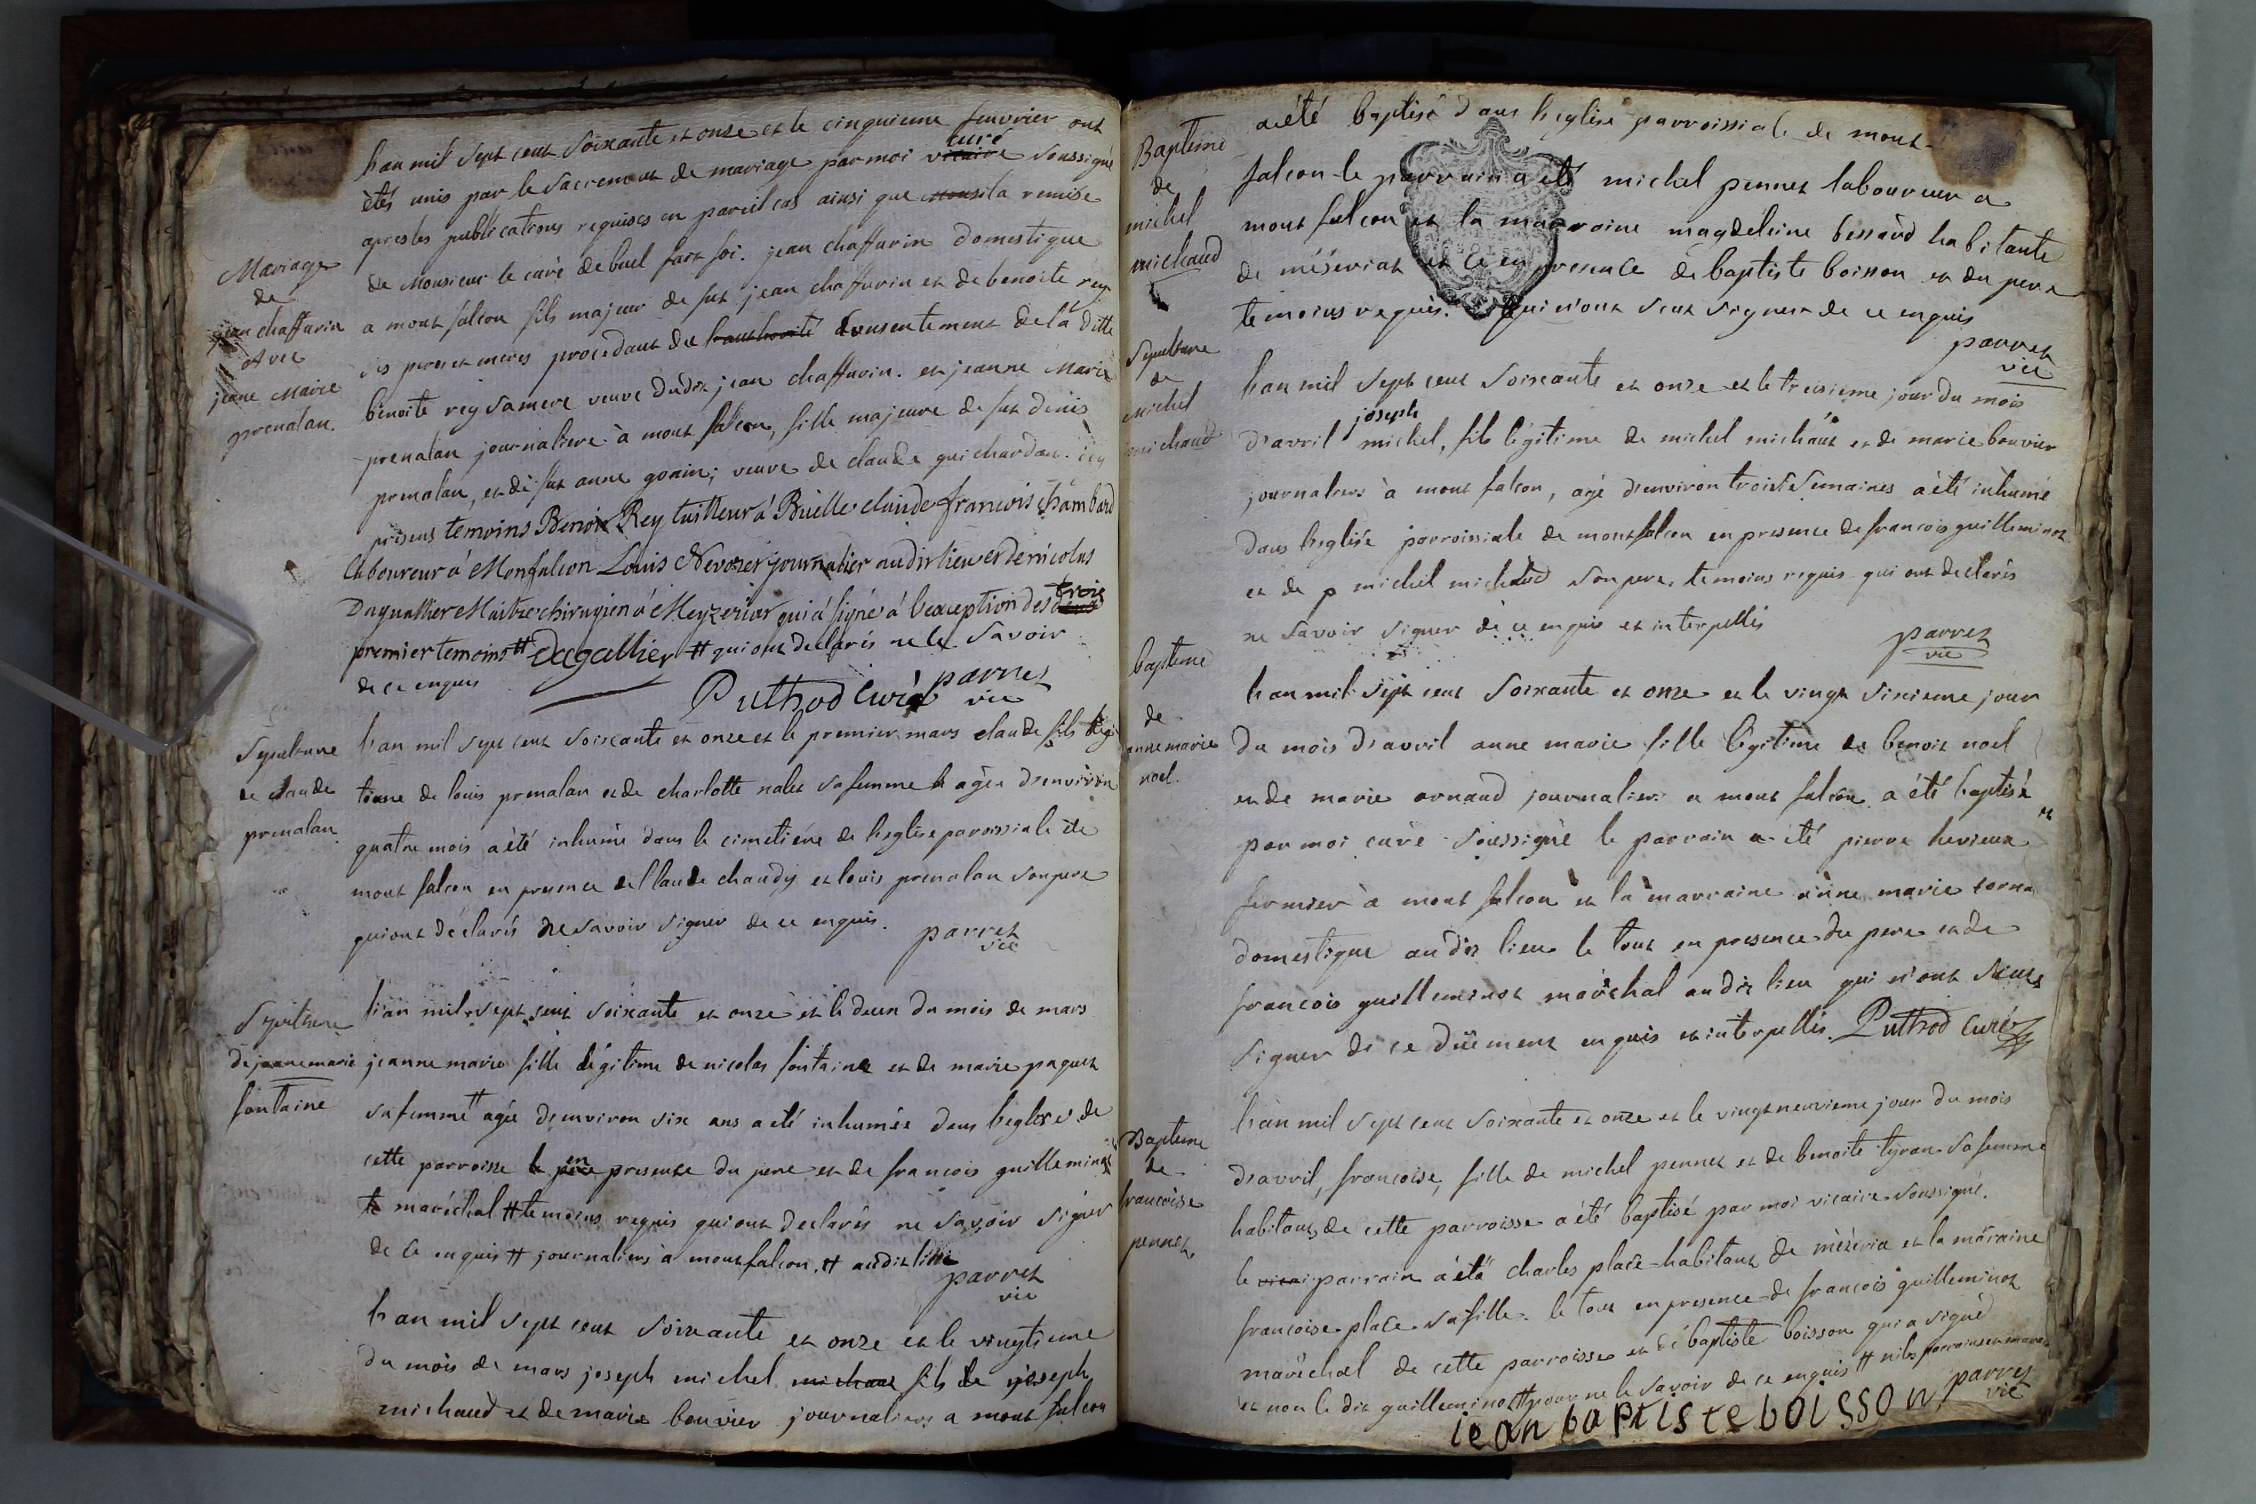 Mariage
de
jean chaffurin
Avec
jeane Marie
prenalan.
L'an mil sept cent soixante et onze et le cinquieme feuvrier ont
étés unis par le sacrement de mariage par moi vicaire curé soussigné
apres les publications requises en pareil cas ainsi que la remise
de Monsieur le curé de buel fait foi. jean chaffurin domestique
a mont falcon fils majeur de fut jean chaffurin et de benoite rey
ses peres et meres procedant du consentement de la ditte
benoite rey sa mere veuve dudit jean chaffurin. et jeanne Marie
prenalan journaliere à mont falcon, fille majeure de fut denis
prenalan, et de fut anne goain; veuve de claude guichardan. icy
presens temoins Benoit Rey tailleur á Buelle claude francois chambard
laboureur á Monfalcon Louis Nevorer journalier audit lieu et de nicolas
Daguallier Maitre chirugien á Meyzeriar qui á signé á l'exception des deux trois
premier temoins # Dagallier # qui ont declarés ne le savoir
de ce enquis
Puthod Curé parret
vic
Sepulture
de claude
prenalan
L'an mil sept cent soixante et onze et le premier mars claude fils légi
time de louis prenalan et de charlotte nalet sa femme agée d'environ
quatre mois a été inhumé dans le cimetiére de l'eglise paroissiale de
mont falcon en presence de Claude chaudy et louis prenalan son pere
qui ont déclarés ne savoir signer de ce enquis. parret
vic
Sepulture
de jeanne marie
fontaine
L'an mil sept cent soixante et onze et le deux du mois de mars
jeanne marie fille légitime de nicolas fontaine et de marie paquet
sa femme # agée d'environ six ans a été inhumée dans l'eglise de
cette parroisse en presence du pere et de francois guilleminot
maréchal # temoins requis qui ont declarés ne savoir signer
de ce enquis # journaliers à mont falcon. # audit lieu
parret
vic
L'an mil sept cent soixante et onze et le vingtieme
du mois de mars joseph michel michaut fils de joseph
michaud et de marie bouvier journaliers a mont falcon
Bapteme
de
michel
michaud
a été baptisé dans l'eglise parroissiale de mont-
falcon le parrain a été michel pennet laboureur a
mont falcon et la marraine magdeleine bessard habitante
de méseriat et ce en presence de baptiste boisson et du pere
temoins requis. qui n'ont seut signer de ce enquis
parret
vic
Sepulture
de
Michel
michaud
L'an mil sept cent soixante et onze et le treisieme jour du mois
d'avril joseph michel, fils légitime de michel michaut et de marie bouvier
journaliers à mont falcon, agé d'environ trois semaines a été inhumé
dans l'eglise parroissiale de mont falcon en presence de francois guilleminot
et de p michel michaud son pere, temoins requis qui ont declarés
ne savoir signer de ce enquis et interpellés
parret
vic
bapteme
de
anne marie
noel.
L'an mil sept cent soixante et onze et le vingt sixieme jour
du mois d'avril anne marie fille légitime de benoit noel
et de marie arnaud journaliers a mont falcon a été baptisé
par moi curé soussigné le parrain a été pierre herieux
fermier à mont falcon et la marraine anne marie torna
domestique au dit lieu le tout en presence du pere et de
francois guilleminot maréchal au dit lieu qui n'ont seuts
signer de ce düement enquis et interpellés. Puthod Curé
Bapteme
de
francoise
pennet.
L'an mil sept cent soixante et onze et le vingt neuvieme jour du mois
d'avril, francoise, fille de michel pennet et de benoite tyran sa femme
habitans de cette parroisse a été baptisé par moi vicaire soussigné.
le vicai parrain a été charles place habitant de méséria et la maraine
francoise place sa fille. le tout en presence de francois guilleminot
maréchal de cette parroisse et de baptiste boisson qui a signé
et non le dit guilleminot # pour ne le savoir de ce enquis # ni les parrain et maraine
jean baptiste boisson parret
vic